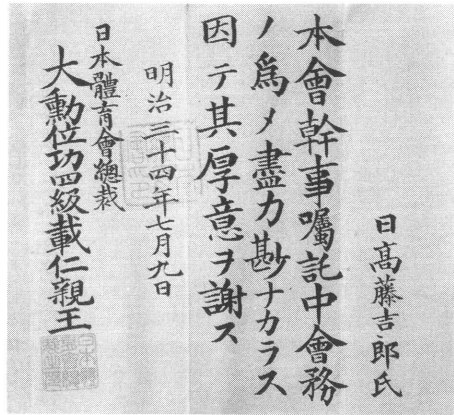 日髙藤吉郎氏
本會幹事囑託中會務
ノ爲メ盡力尠ナカラス
因テ其厚意ヲ謝ス
明治三十四年七月九日
日本體育會總裁
大勳位功四級載仁親王